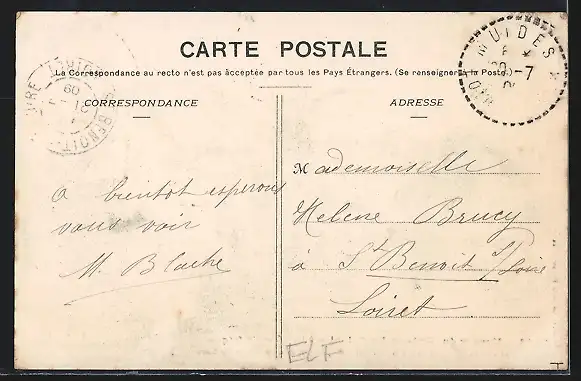 CARTE POSTALE
La Correspondance au recto n'est pas acceptée par tous les Pays Étrangers. (Se renseigner à la Poste)
CORRESPONDANCE
ADRESSE
MUIDES
20-7
BENOIT
09
A bientôt esperons
vous voir
M. Blache
Mademoiselle
Helene Brucy
à St Benoit s/Loire
Loiret
ELF